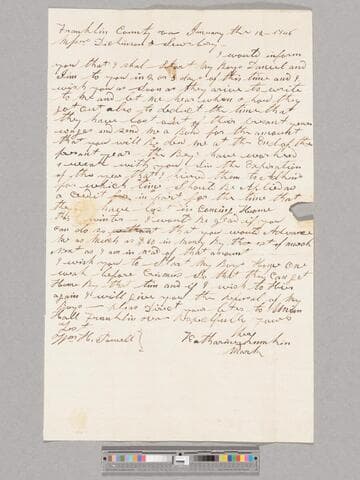 Franklin County Va January the 12 1848
Messrs Dickinson &
I would inform
you that I shall start my Boys Daniel and
Jim to you in 2 or 3 days of this time and I
wish you as soon as they arive to write
to me and let me hear when & how they
got out also to deduct the time that
they have lost out of their present years
wages and send me a Bond for the amount
that you will be due me at the End of the
present year the Boys have worked
with you since the Expiration
of the year that I hired them to
for which time should be aplied as
a Credit in part for the time that
they have lost in Coming Home
this winter I want be glad if you
can do so that you would Advance
me as much as $60 in money by the 1st of march
next as I am in need of that amount
I wish you to Start my Boys home One
week before Crismus So that they can get
Home By that time and if I wish to Hier
again I will give you the refusal of my
Boys Direct your letter to Union
Hall Franklin Va Respectfully yours
Test
Wm H. Powell
her
Katharine
Mark